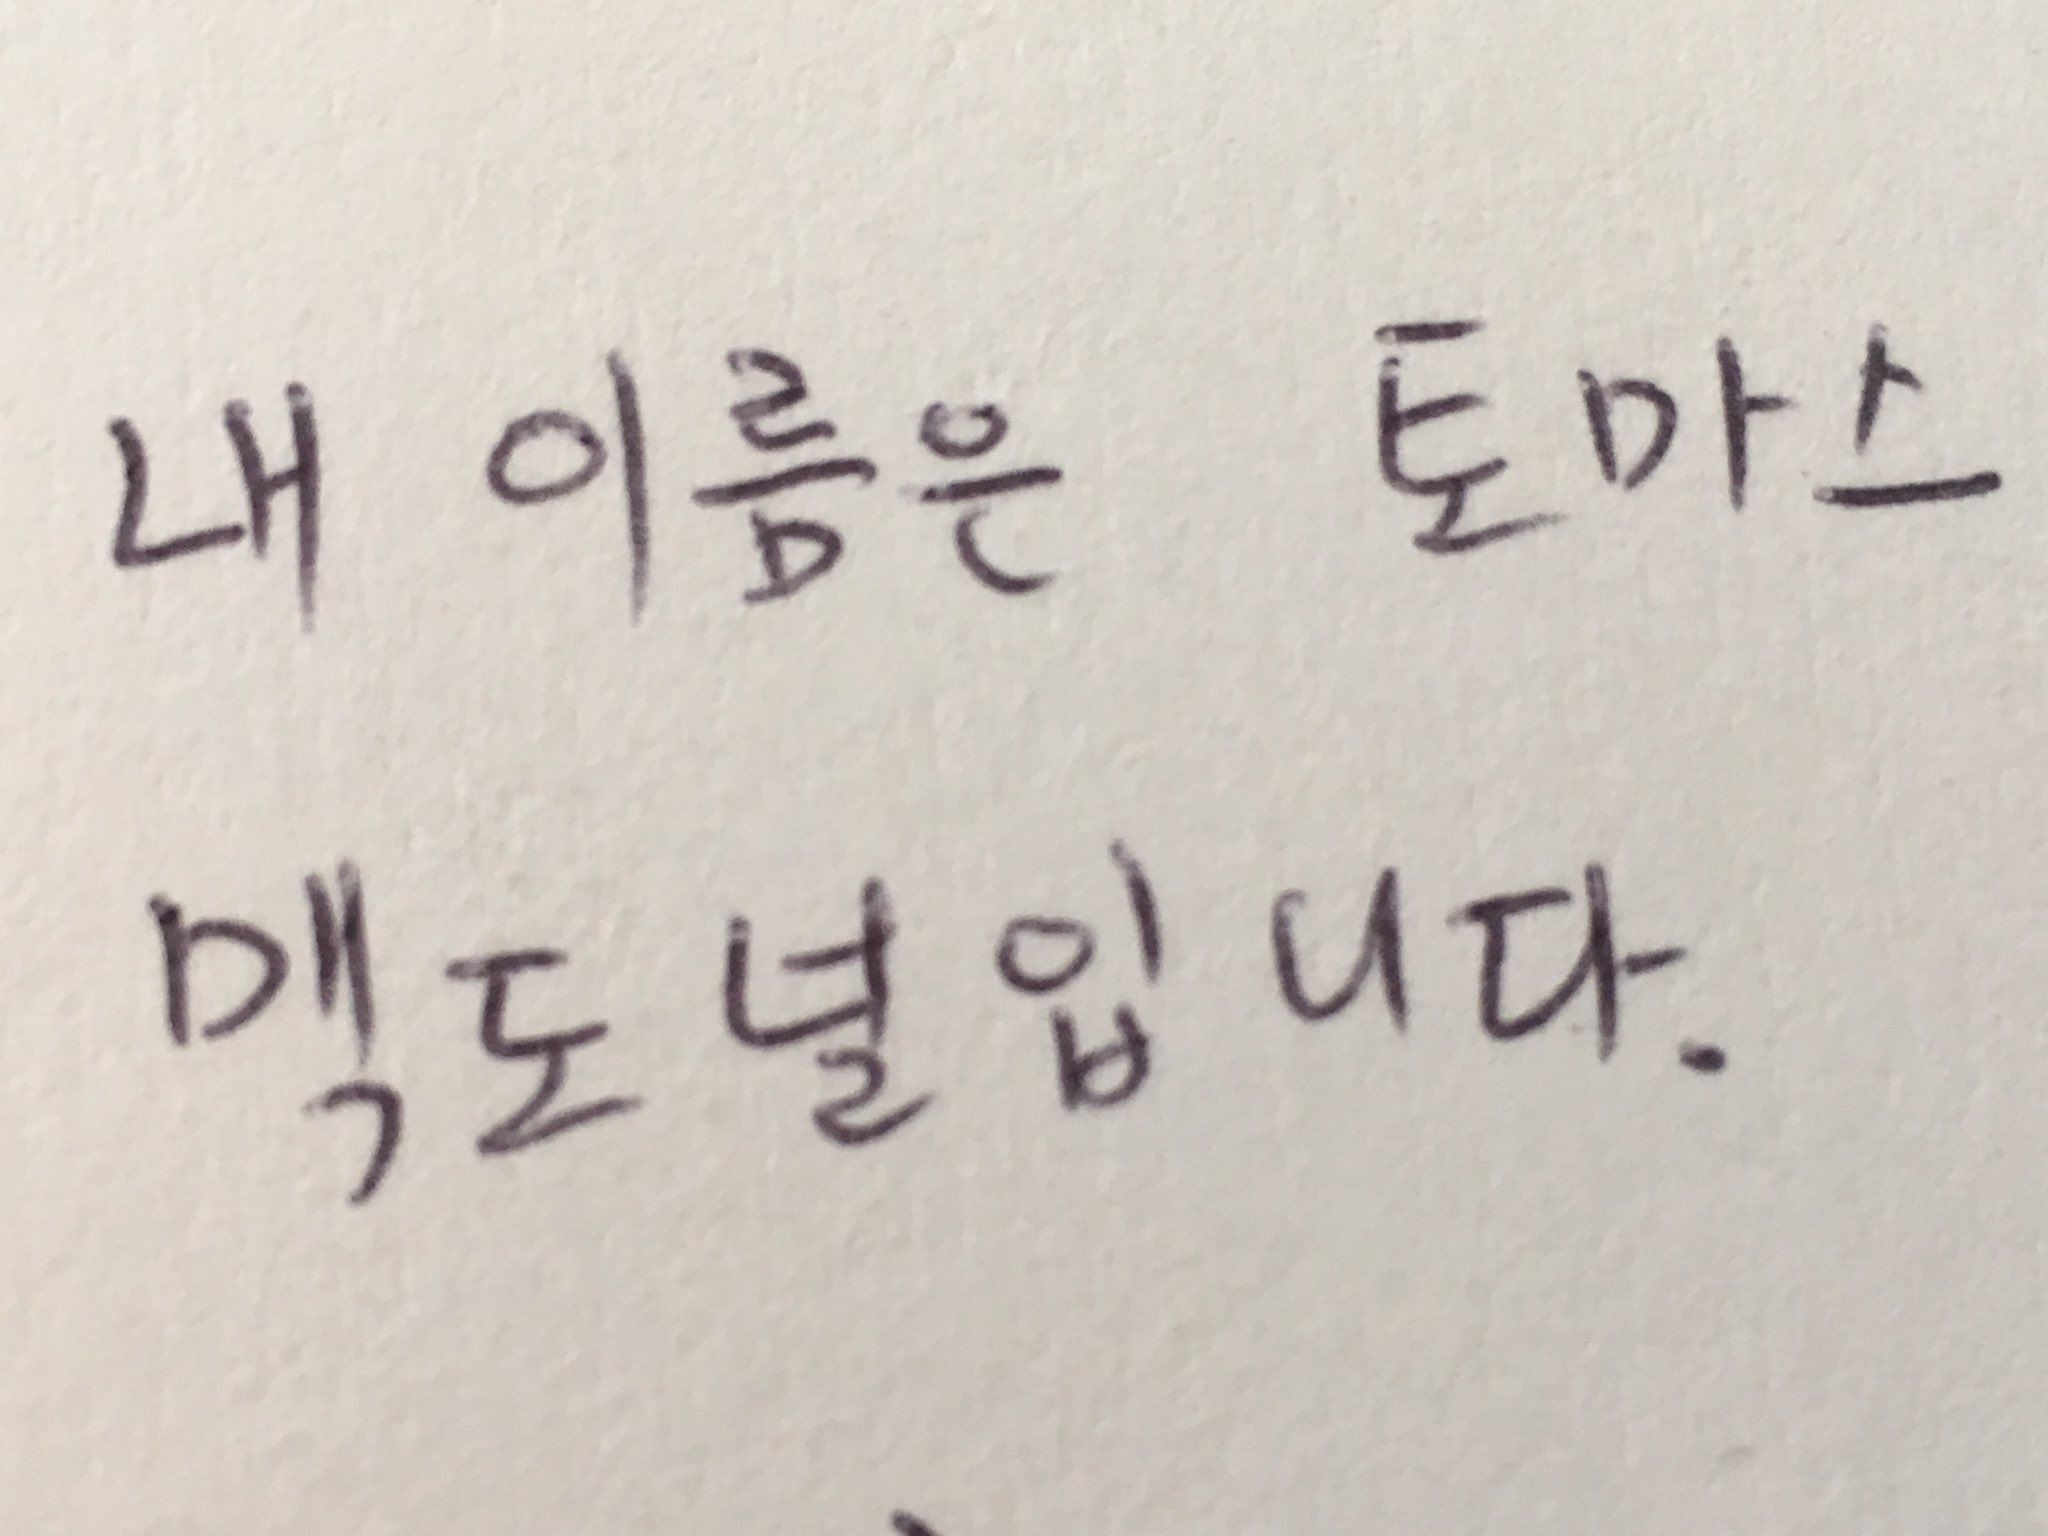 내 이름은 토마스
맥도널입니다.